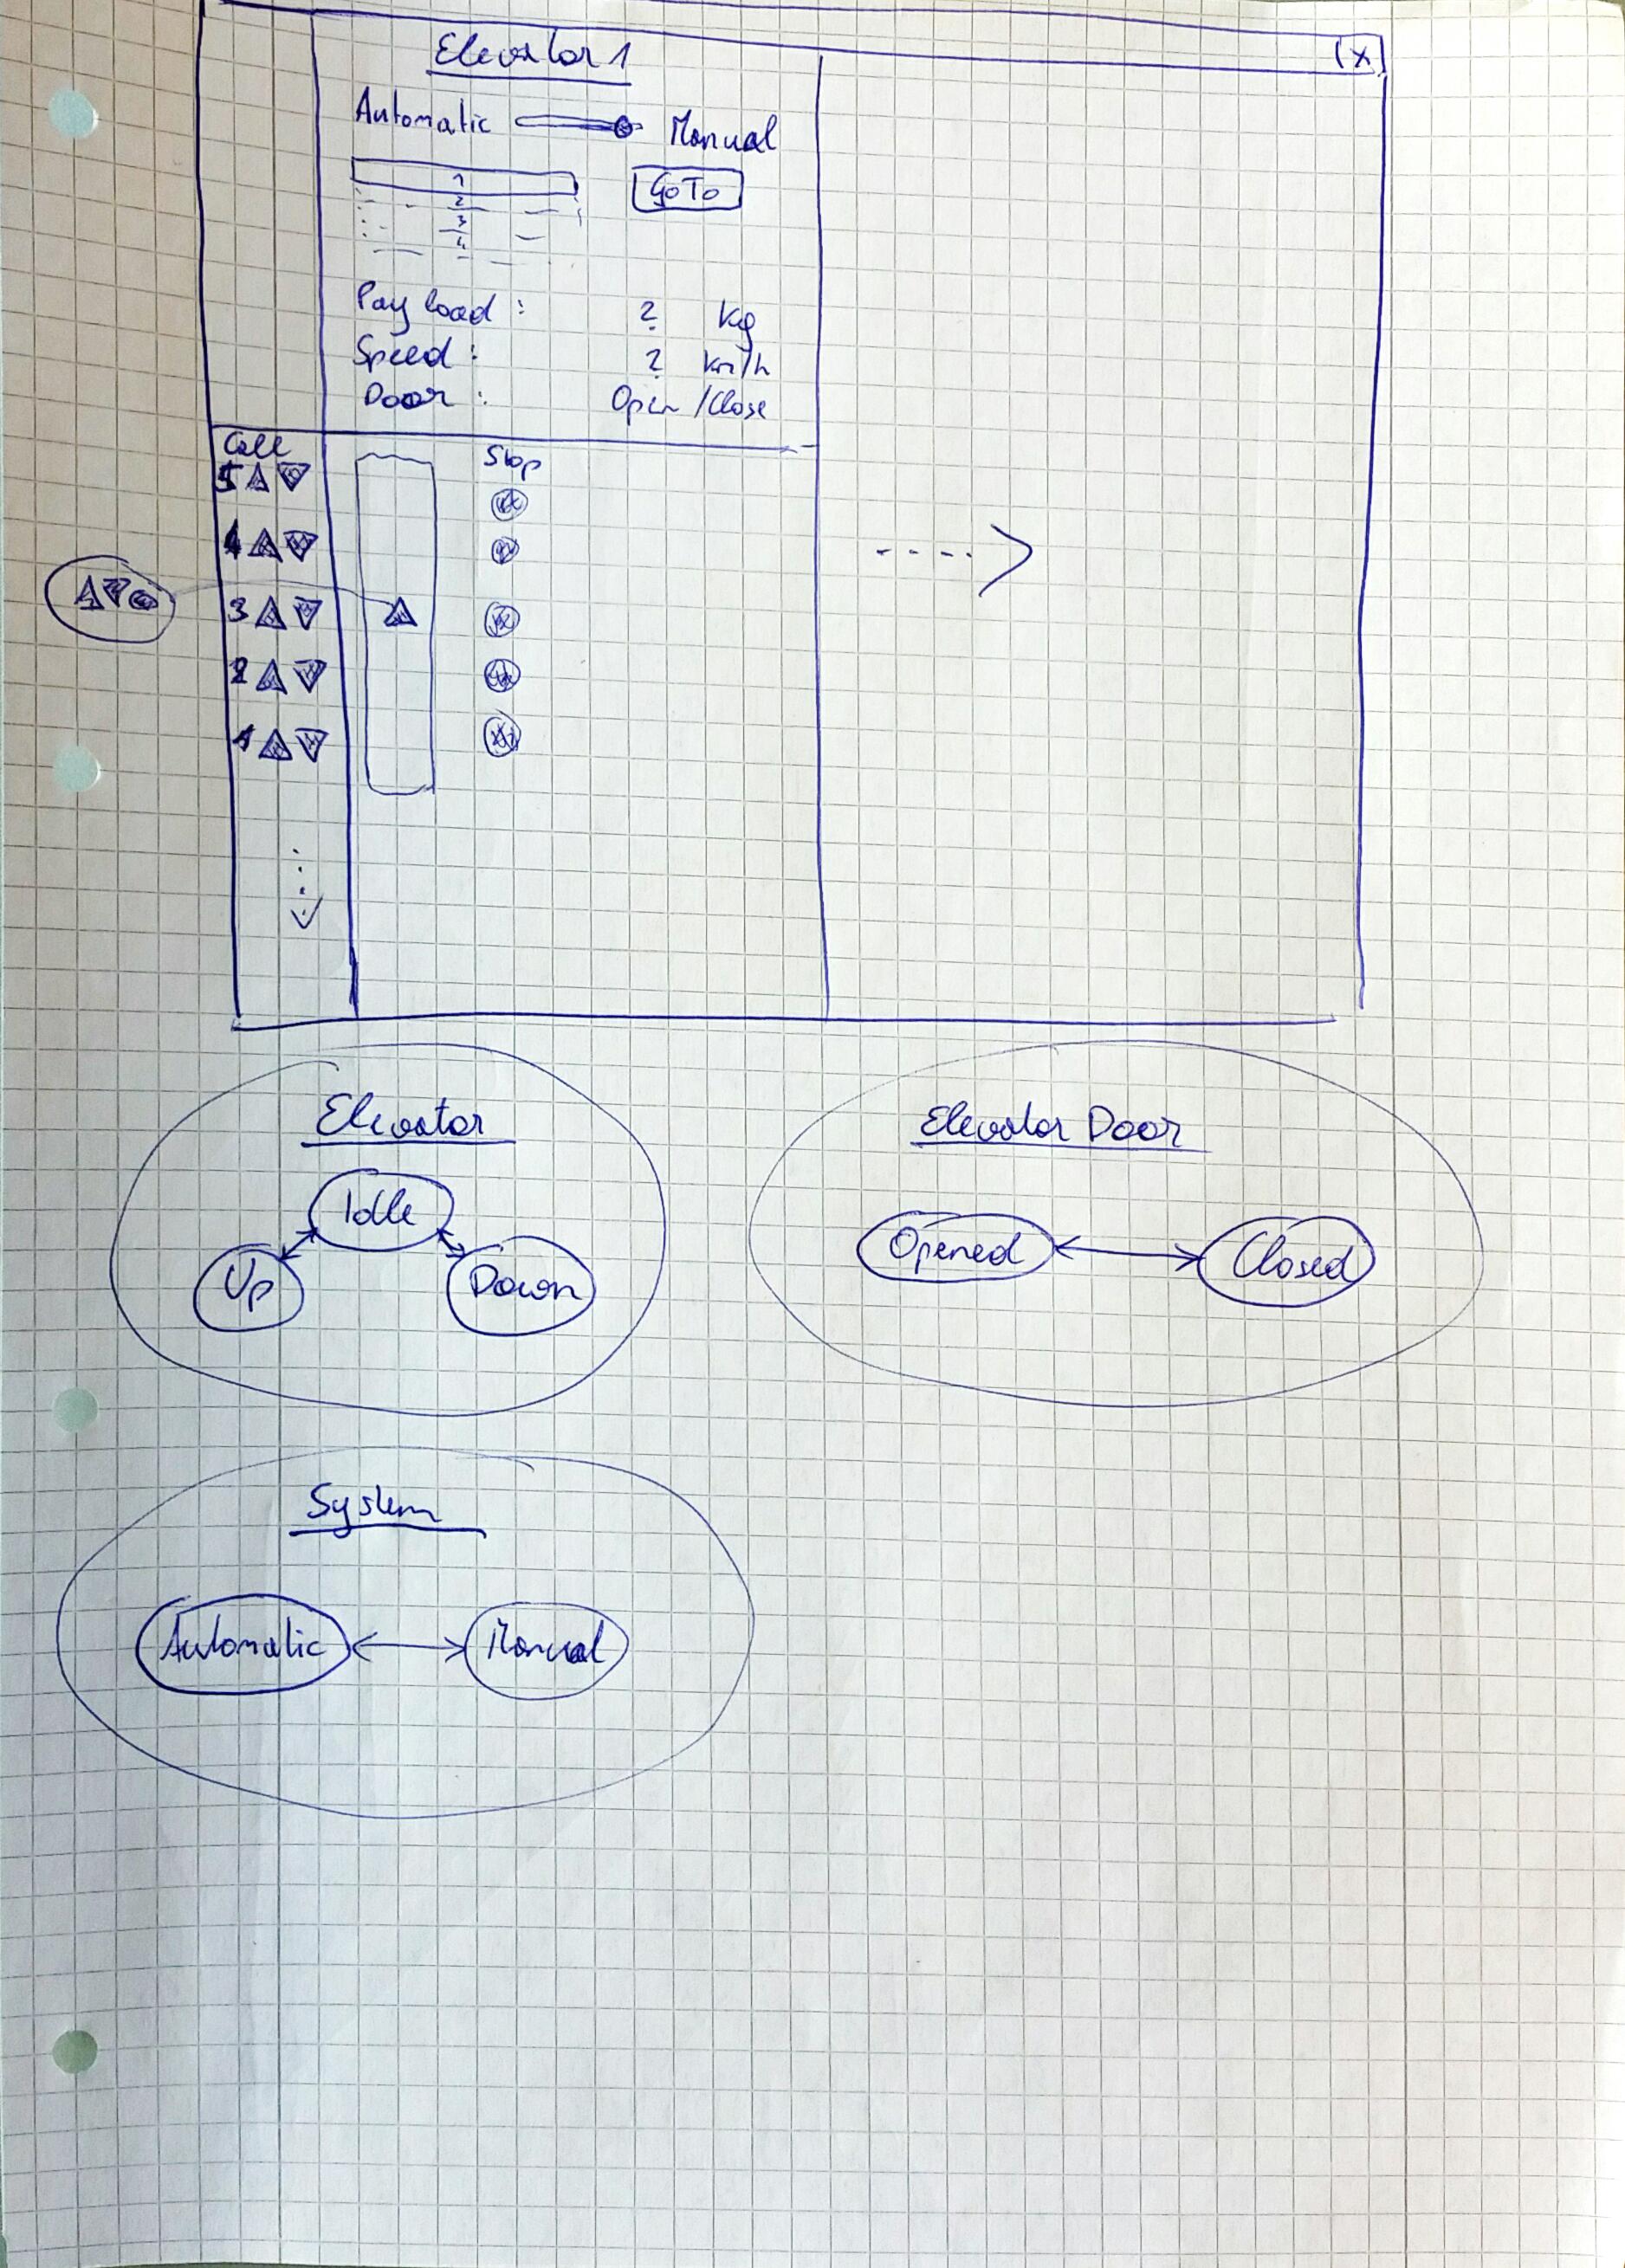 Elevator 1
(x)
Automatic Manual
1
GoTo
2
3
4
Payload : ? kg
Speed : ? km/h
Door : Open / Close
Call Stop
5
4
3
2
1
Elevator
Idle
Up
Down
Elevator Door
Opened
Closed
System
Automatic
Manual